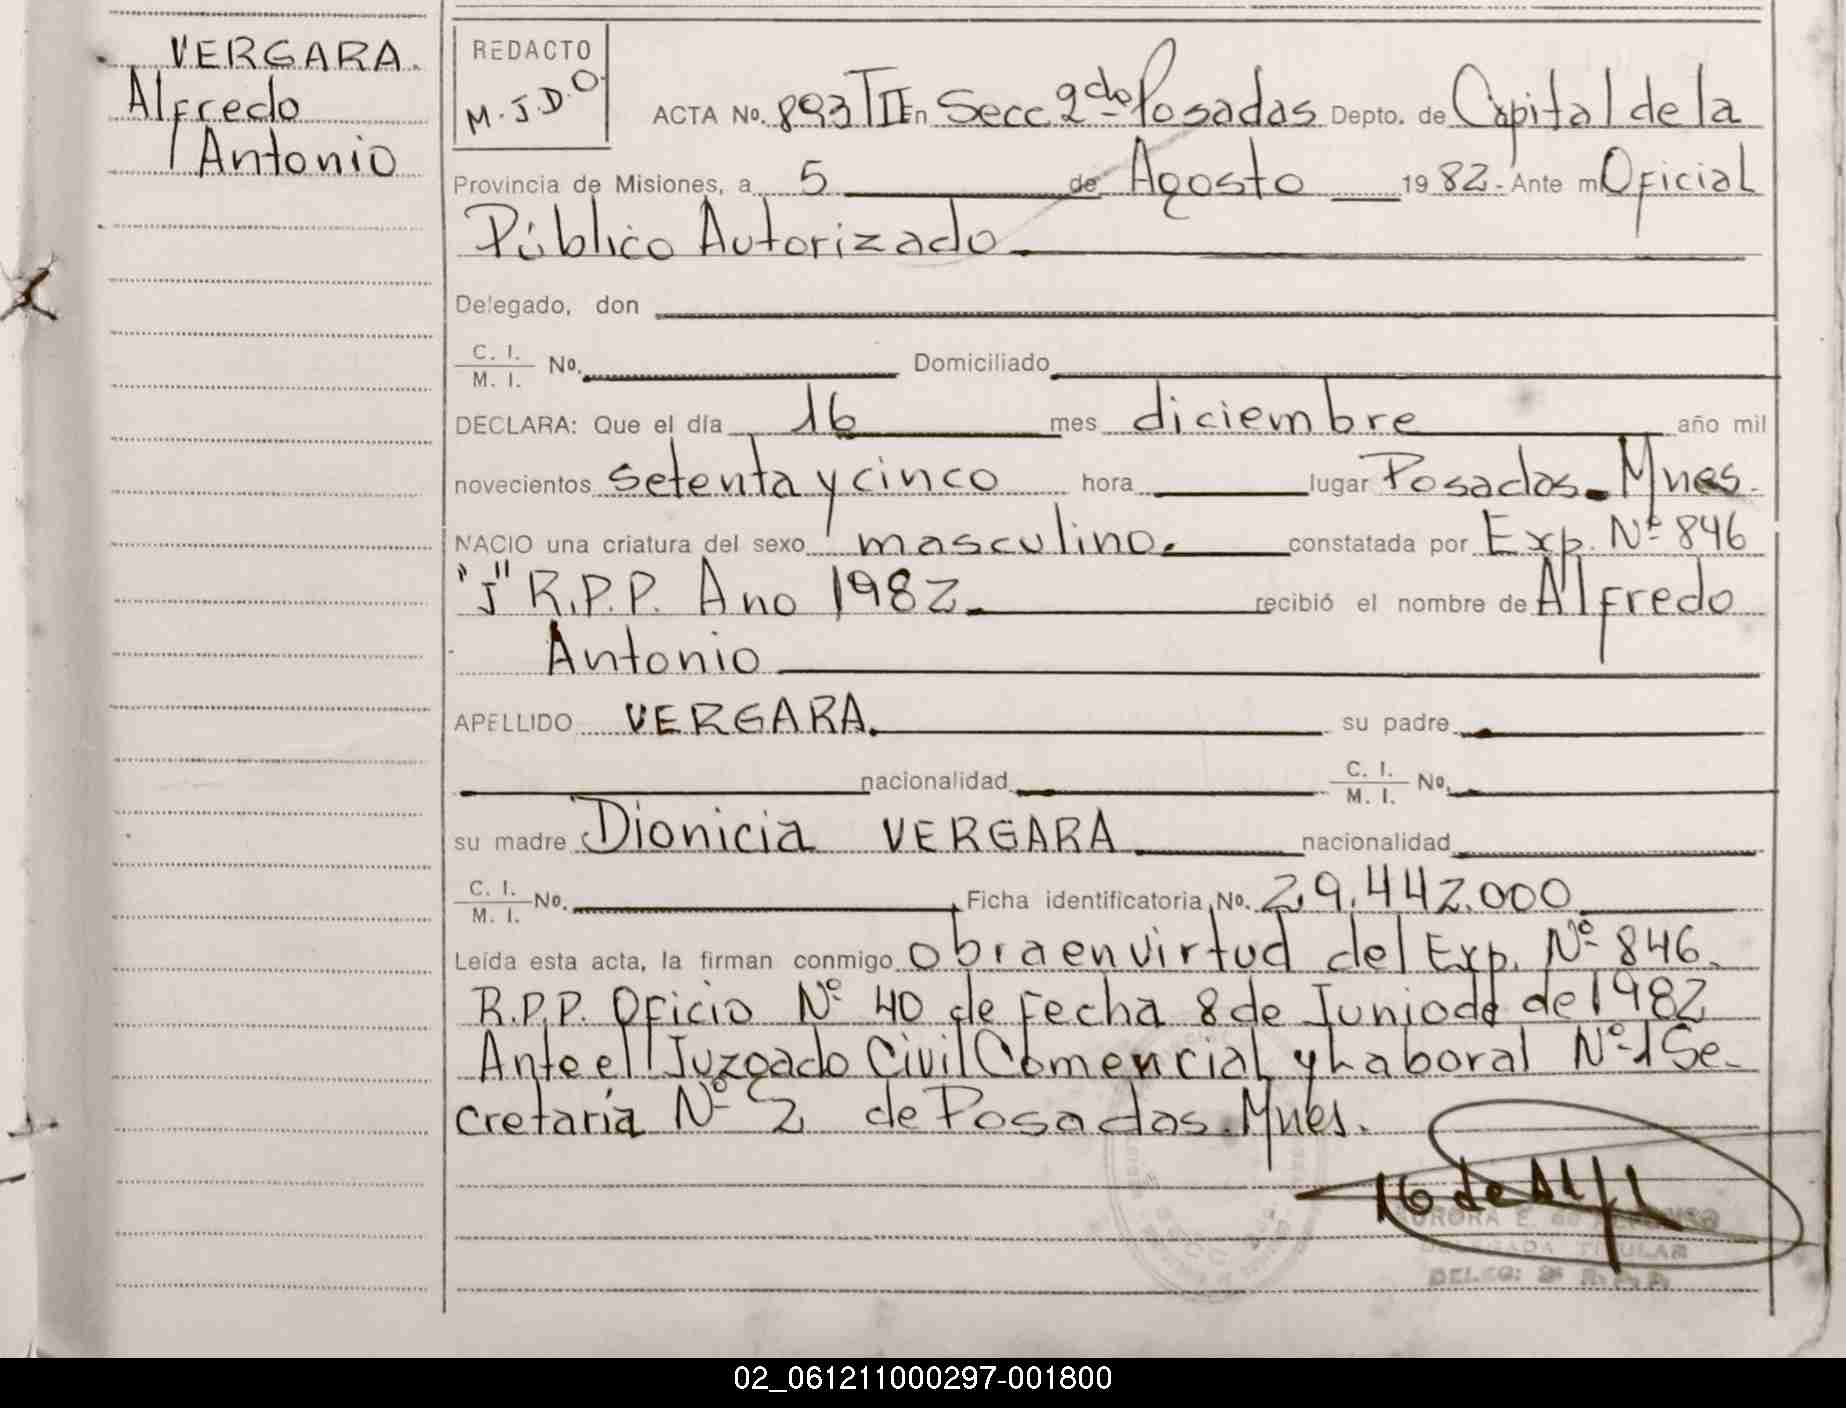 VERGARA.
Alfredo
Antonio
REDACTO
M.J.D.O
ACTA No. 893 TII En Secc 2da Posadas Depto. de Capital de la
Provincia de Misiones, a 5 de Agosto 1982.- Ante mi Oficial
Público Autorizado
Delegado, don
C. I. / M. I. No. Domiciliado
DECLARA: Que el día 16 mes diciembre año mil
novecientos setenta y cinco hora lugar Posadas. Mnes.
NACIO una criatura del sexo masculino. constatada por Exp. Nº 846
"J" R.P.P. Ano 1982 recibió el nombre de Alfredo
Antonio
APELLIDO VERGARA. su padre
nacionalidad C. I. / M. I. No.
su madre Dionicia VERGARA nacionalidad
C. I. / M. I. No. Ficha identificatoria No. 29.442.000
Leída esta acta, la firman conmigo obra en virtud del Exp. Nº 846.
R.P.P. Oficio Nº 40 de Fecha 8 de Junio de de 1982
Ante el Juzgado Civil Comencial y Laboral Nº 1 Se-
cretaría Nº 2 de Posadas. Mnes.
AURORA E. de
DELEGADA TITULAR
02_061211000297-001800